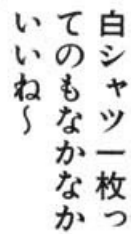 白シャツ一枚っ
てのもなかなか
いいね〜